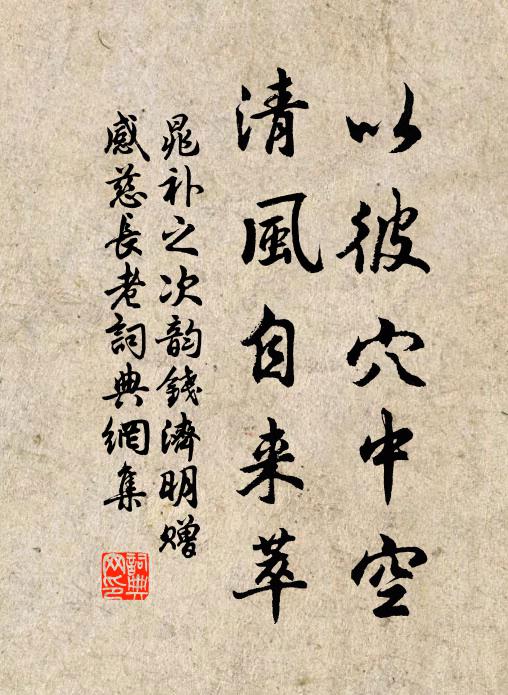 以彼穴中空
清風自来萃
晁补之次韵錢濟明贈
感慈長老詞典網集
詞典网印